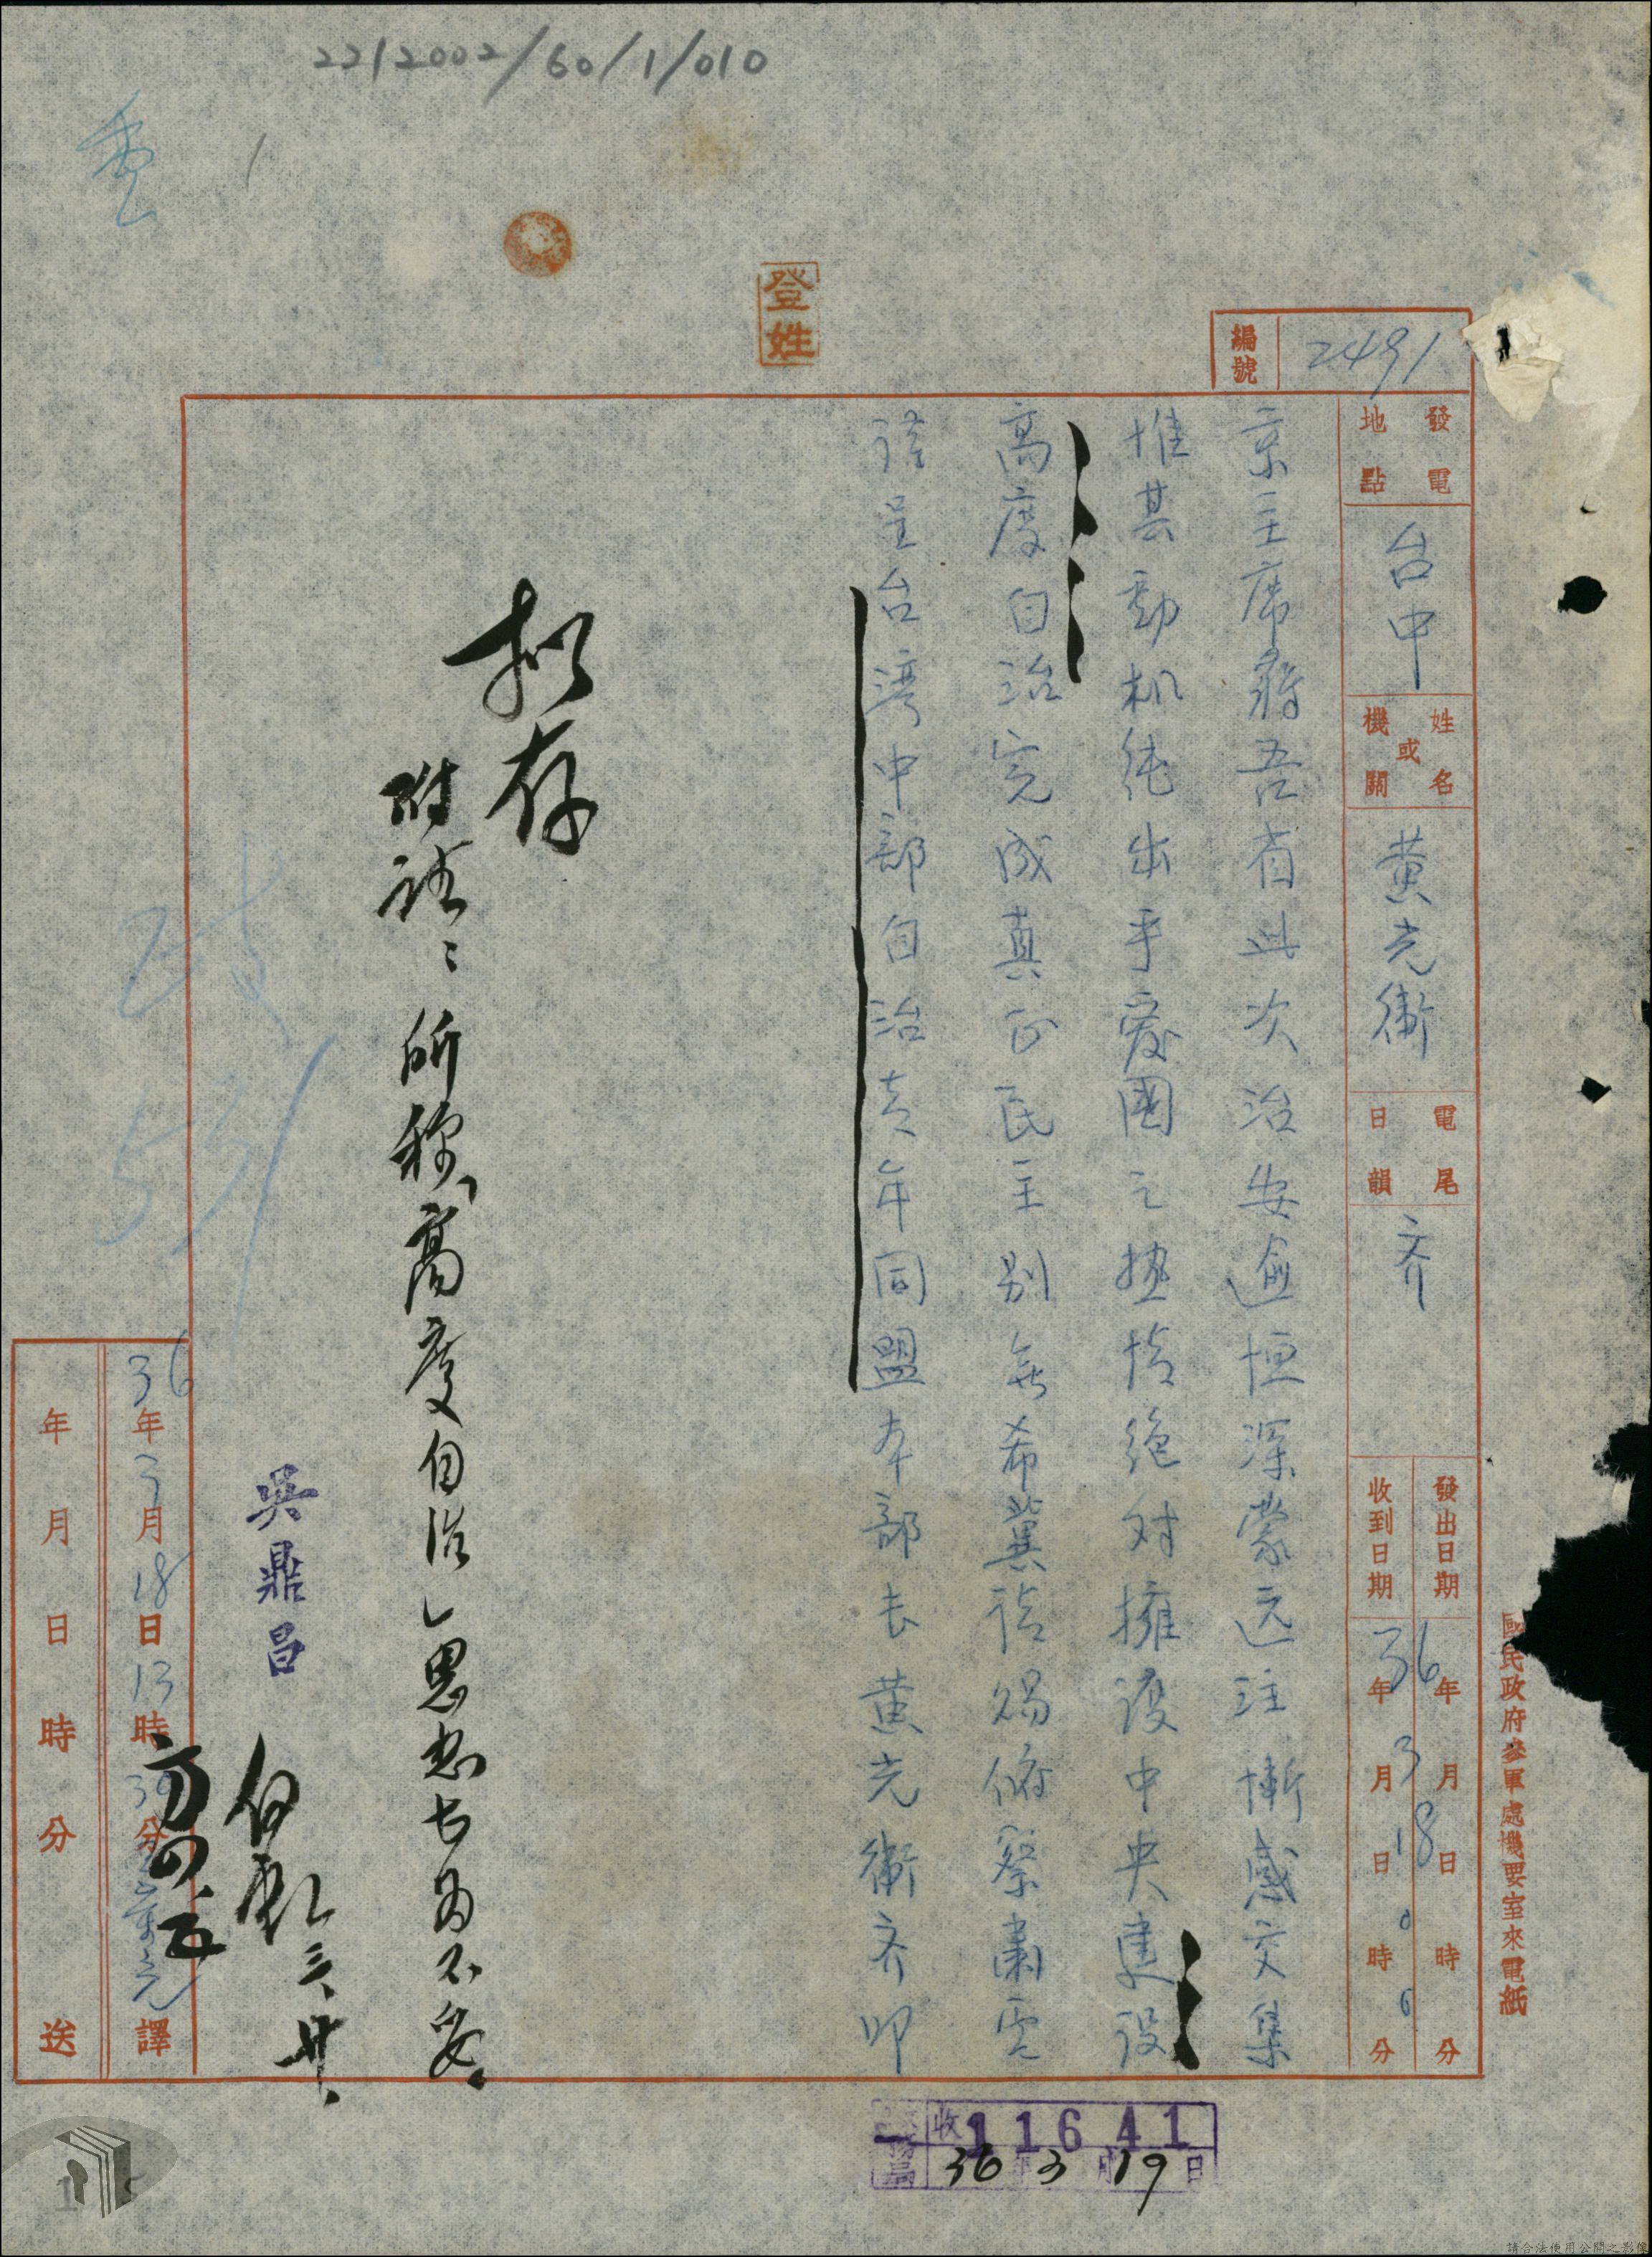 2212002/60/1/010
1
登姓
編號 2491
發電地點 台中
姓名或機關 黃光衛
電尾日韻 齐
發出日期 36年3月18日 時 分
收到日期 年 月 日 時 分
國民政府參軍處機要室來電紙
京主席蔣吾省此次治安逾恒深蒙远注慚感交集
惟其動机純出乎爱國之熱情绝对擁護中央建設
高度自治完成真正民主别無希冀請賜俯察肅電
謹呈台湾中部自治青年同盟本部长黄光衛齐叩
拟存
附註：所称「高度自治」思想甚为不妥。
吳鼎昌
三、廿、
36年3月18日13時39分 譯
年月日時分送
收11641
36年3月19日
請合法使用公開之影像